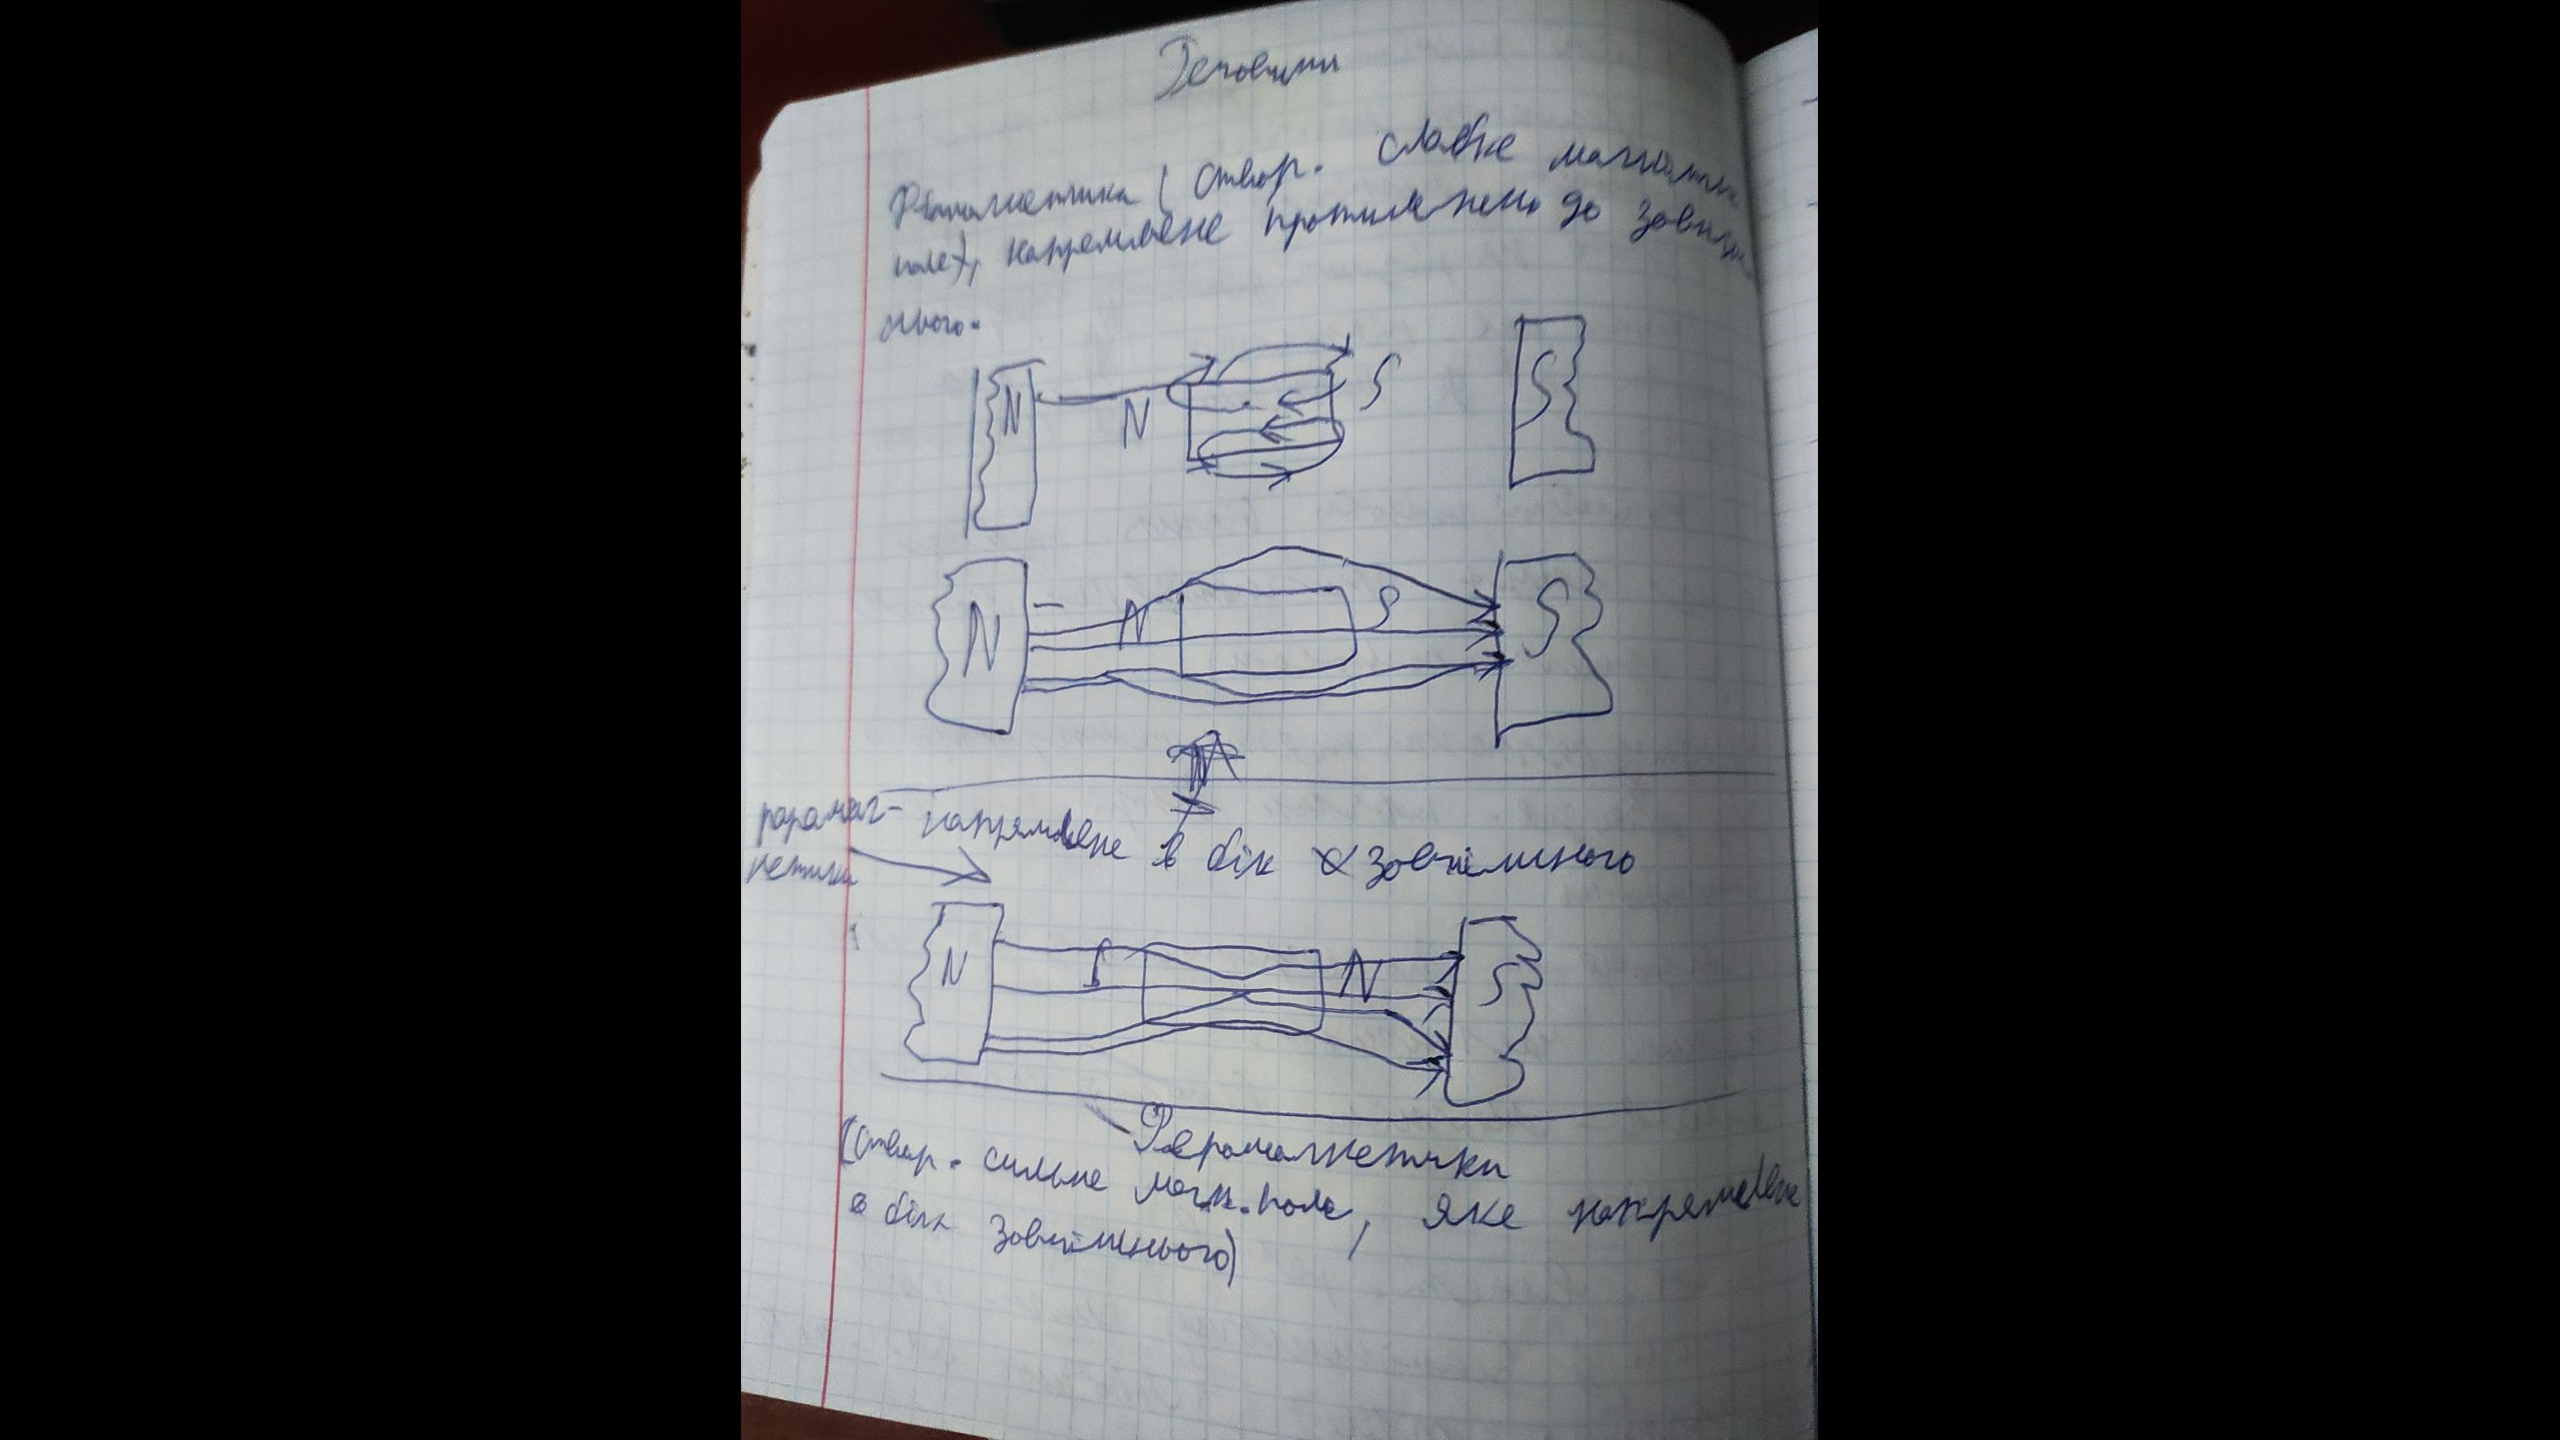 Речовини
Діамагнетики (створ. слабке магнітне
поле), напрямлене протилежно до зовніш
нього.
N N S S
N N S S
парамаг- напрямлене в бік зовнішнього
нетики
N S N S
Феромагнетики
(створ. сильне магн. поле, яке напрямлене
в бік зовнішнього)